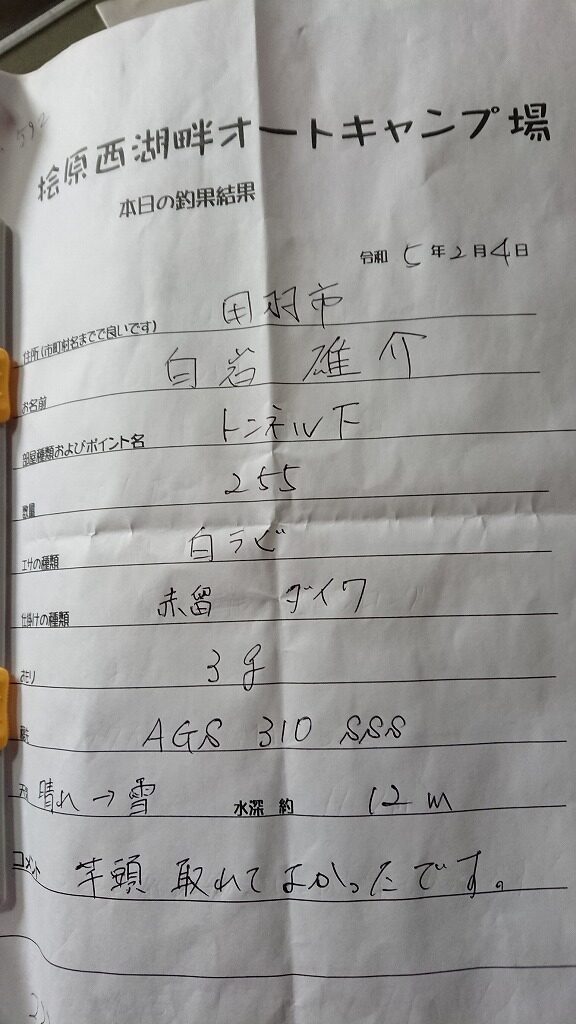 592
桧原西湖畔オートキャンプ場
本日の釣果結果
令和 5年2月4日
住所(市町村名までで良いです) 田羽市
お名前 白岩 雄介
部屋種類およびポイント名 トンネル下
数量 255
エサの種類 白ラビ
仕掛けの種類 赤留 ダイワ
おもり 3g
AGS 310 SSS
晴れ→雪 水深 約 12m
コメント 竿頭 取れてよかったです。